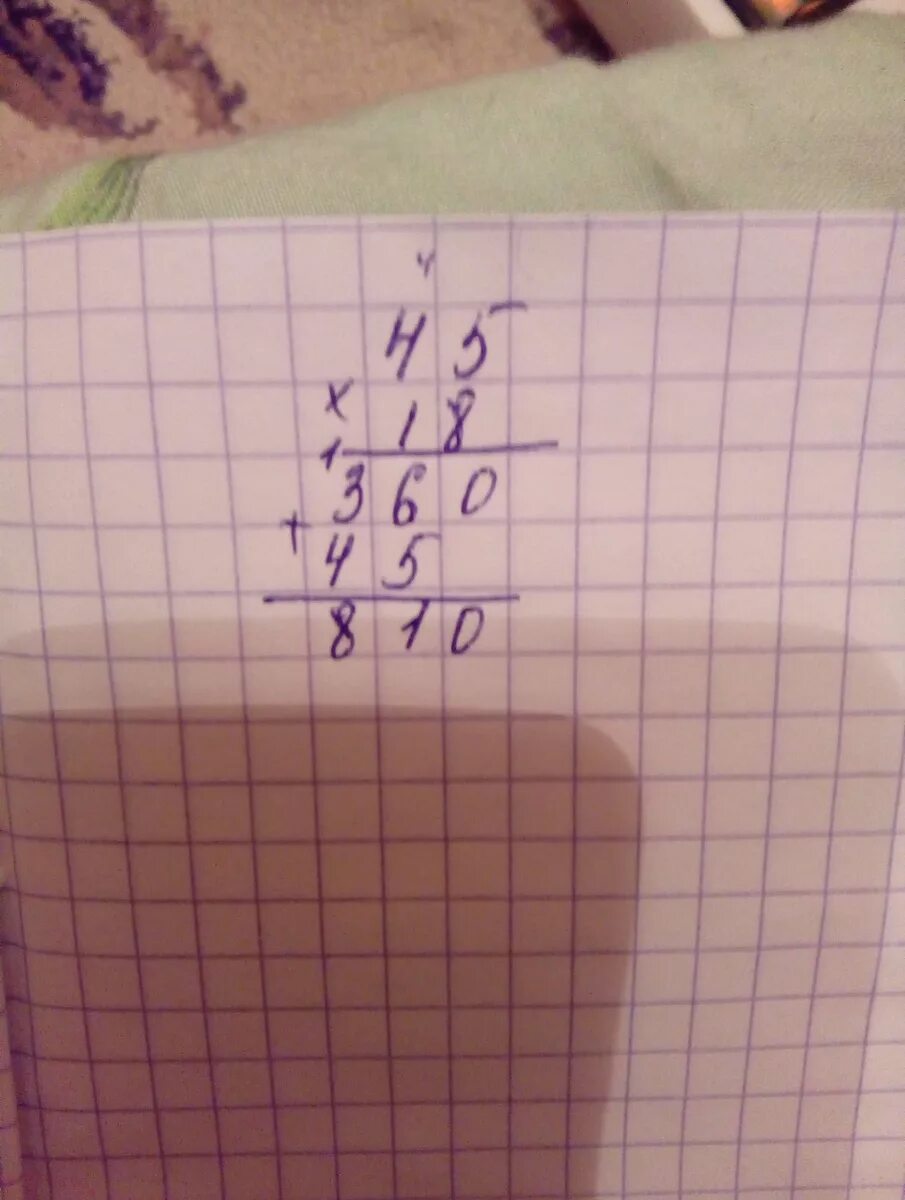 4
45
×
18
1
360
+
45
810